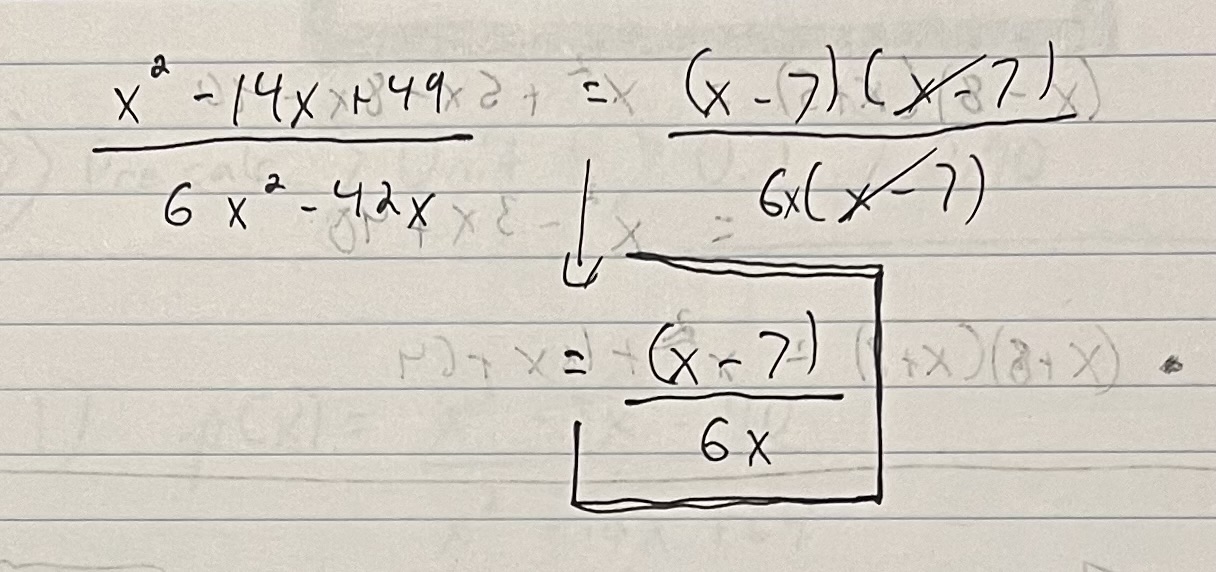 x² - 14x + 49 / 6x² - 42x = (x - 7)(x - 7) / 6x(x - 7)
↓
= (x - 7) / 6x